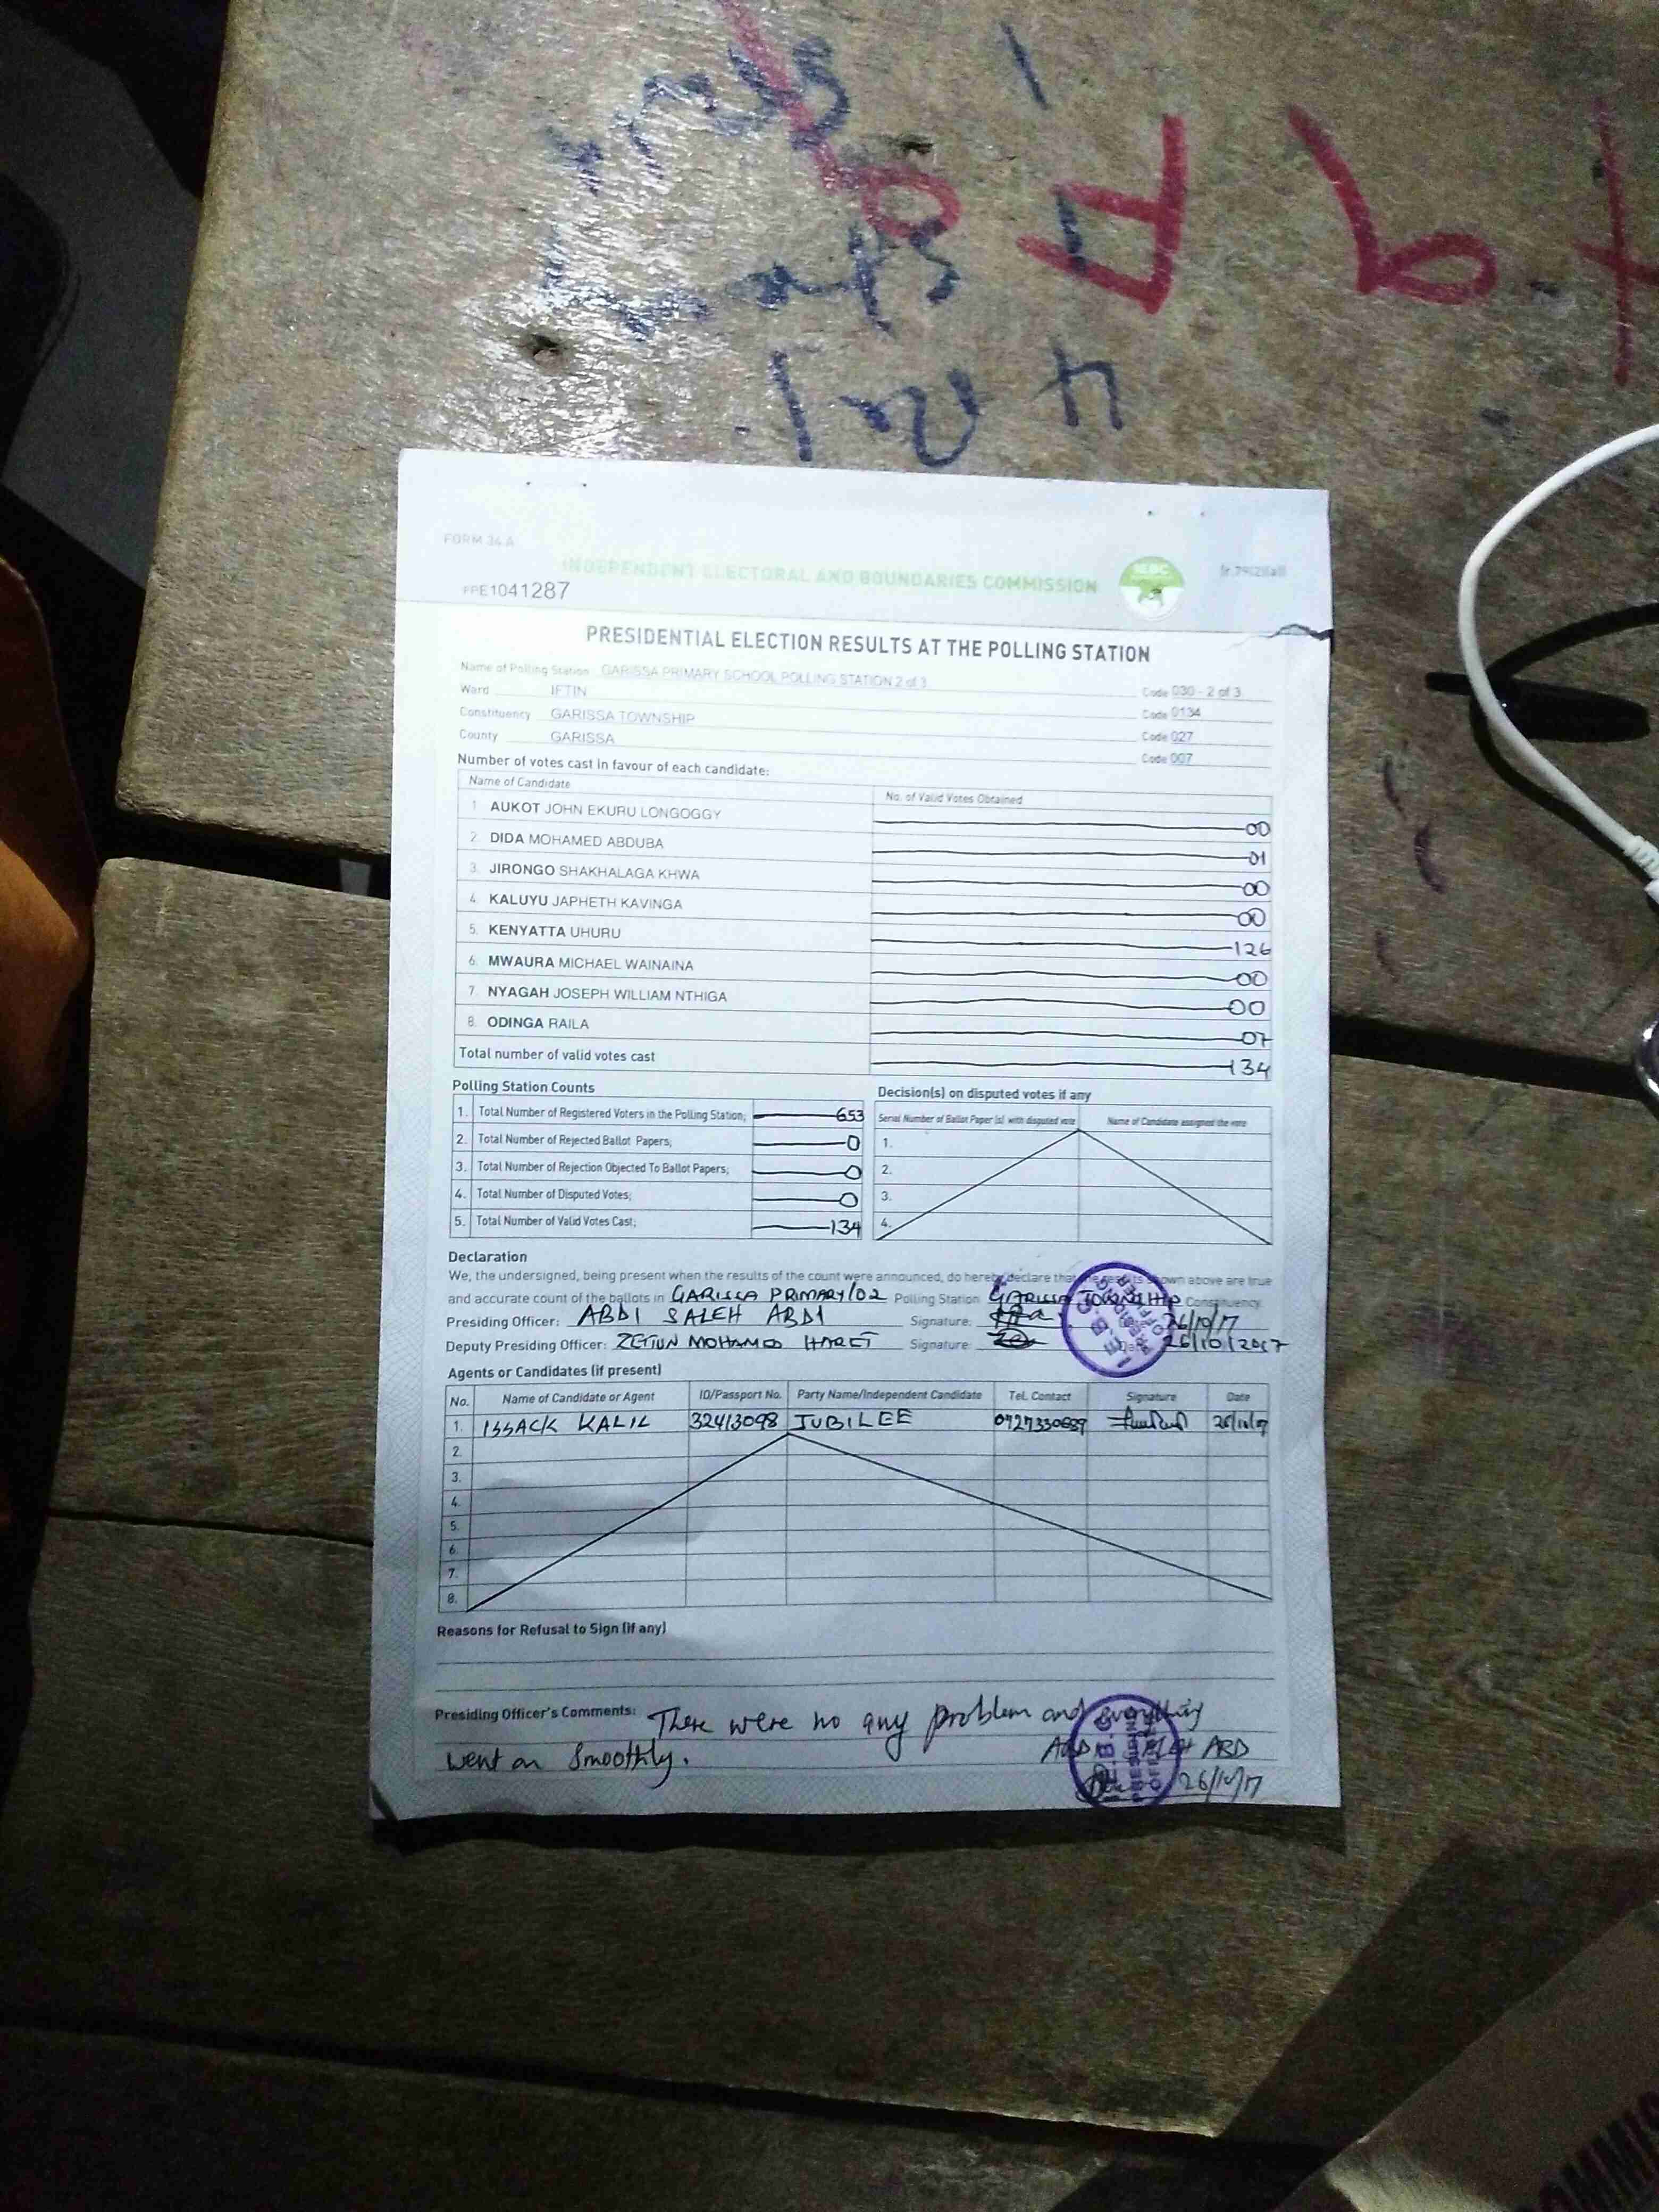 FORM 34 A
INDEPENDENT ELECTORAL AND BOUNDARIES COMMISSION
IEBC
(r.79(2)(a))
FPE1041287
PRESIDENTIAL ELECTION RESULTS AT THE POLLING STATION
Name of Polling Station GARISSA PRIMARY SCHOOL POLLING STATION 2 of 3 Code 030 - 2 of 3
Ward IFTIN Code 0134
Constituency GARISSA TOWNSHIP Code 027
County GARISSA Code 007
Number of votes cast in favour of each candidate:
Name of Candidate No. of Valid Votes Obtained
1 AUKOT JOHN EKURU LONGOGGY 00
2. DIDA MOHAMED ABDUBA 01
3. JIRONGO SHAKHALAGA KHWA 00
4. KALUYU JAPHETH KAVINGA 00
5. KENYATTA UHURU 126
6. MWAURA MICHAEL WAINAINA 00
7. NYAGAH JOSEPH WILLIAM NTHIGA 00
8. ODINGA RAILA 07
Total number of valid votes cast 134
Polling Station Counts
1. Total Number of Registered Voters in the Polling Station; 653
2. Total Number of Rejected Ballot Papers; 0
3. Total Number of Rejection Objected To Ballot Papers; 0
4. Total Number of Disputed Votes; 0
5. Total Number of Valid Votes Cast; 134
Decision(s) on disputed votes if any
Serial Number of Ballot Paper (s) with disputed vote Name of Candidate assigned the vote
1.
2.
3.
4.
Declaration
We, the undersigned, being present when the results of the count were announced, do hereby declare that the results shown above are true
and accurate count of the ballots in GARISSA PRIMARY/02 Polling Station GARISSA TOWNSHIP Constituency
Presiding Officer: ABDI SALEH ABDI Signature: 26/10/17
Deputy Presiding Officer: ZETUN MOHAMED HARET Signature: 26/10/2017
Agents or Candidates (if present)
No. Name of Candidate or Agent ID/Passport No. Party Name/Independent Candidate Tel. Contact Signature Date
1. ISSACK KALIL 32413098 JUBILEE 0727330689 26/10/17
2.
3.
4.
5.
6.
7.
8.
Reasons for Refusal to Sign (if any)
Presiding Officer's Comments: There were no any problem and everything
went on smoothly.
ABDI SALEH ABD
26/10/17
I.E.B.C
PRESIDING
OFFICER